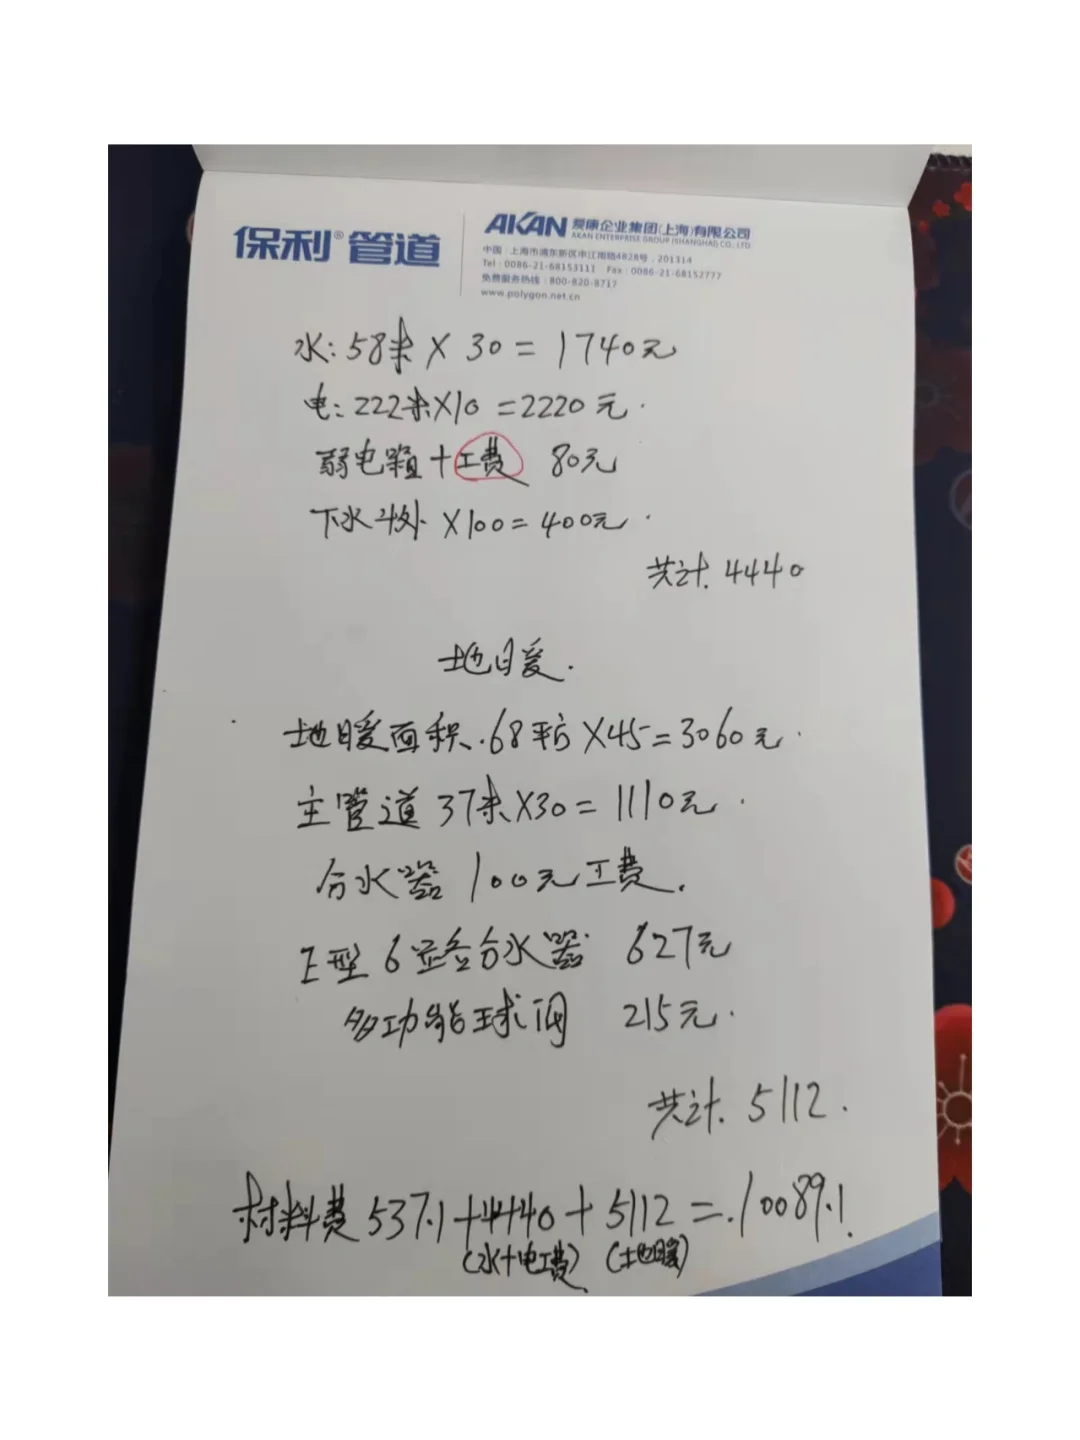 保利®管道
AKAN 爱康企业集团(上海)有限公司
AKAN ENTERPRISE GROUP (SHANGHAI) CO., LTD
中国·上海市浦东新区申江南路4828号，201314
Tel：0086-21-68153111 Fax：0086-21-68152777
免费服务热线：800-820-8717
www.polygon.net.cn
水：58米X30=1740元
电：222米X10=2220元.
弱电箱+工费 80元
下水 4处 X100=400元.
共计.4440
地暖.
地暖面积.68平方X45=3060元.
主管道37米X30=1110元.
分水器 100元工费.
E型6路分水器 627元
多功能球阀 215元.
共计.5112.
材料费537.1+4440+5112=.10089.1
(水+电工费) (地暖)